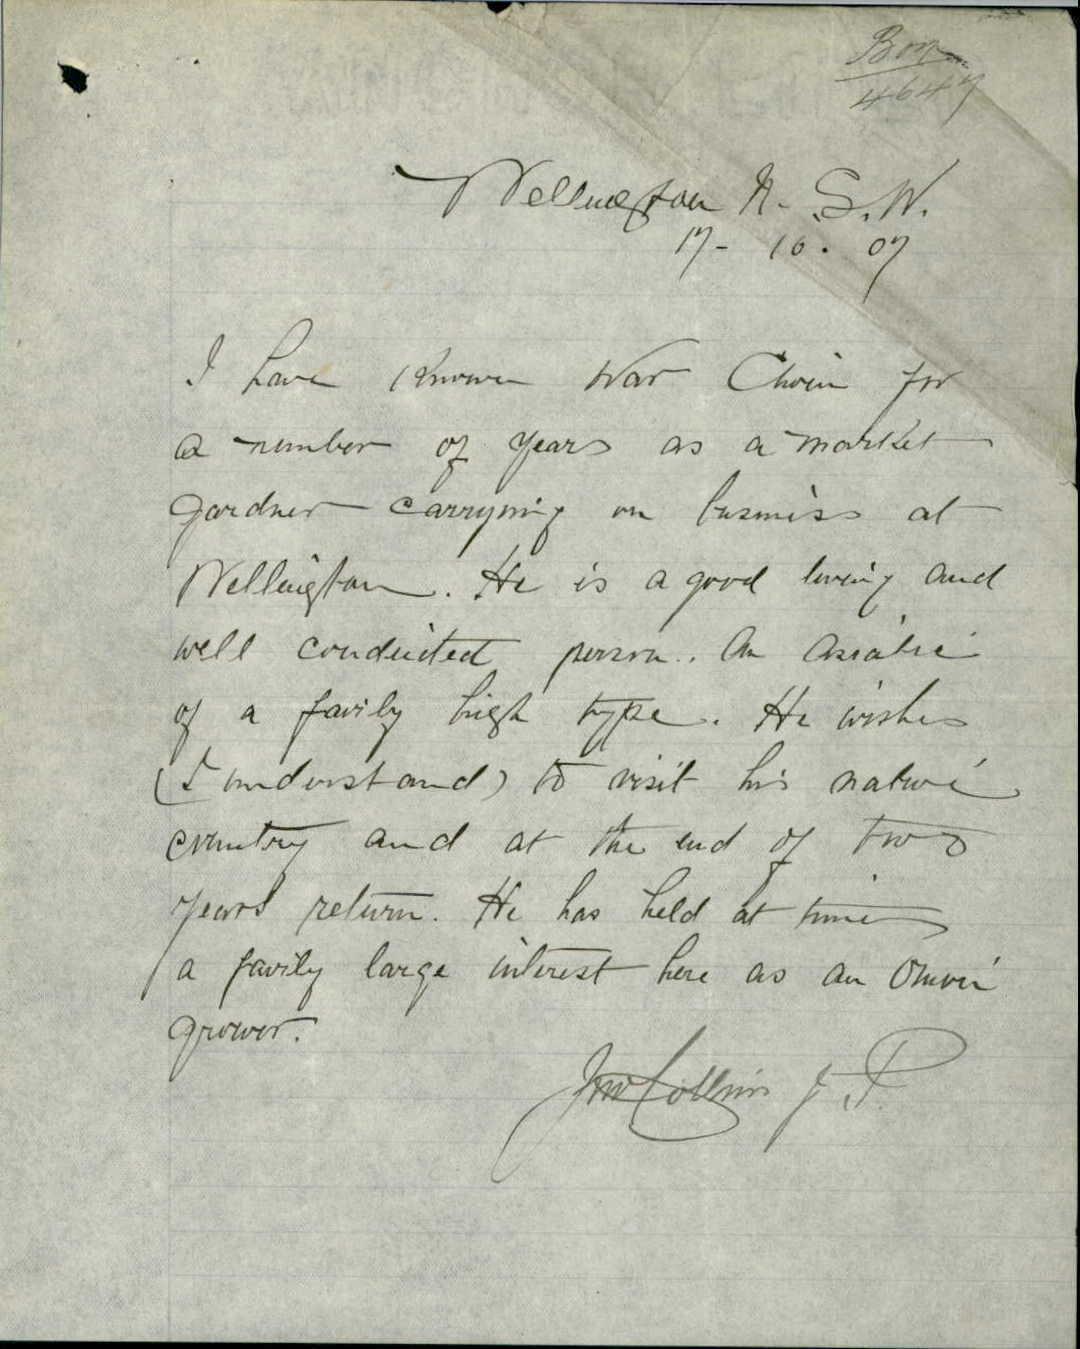 4647
Wellington N. S. W.
17 - 10 . 07
I have known War Choin for
a number of years as a market
gardner carrying on business at
Wellington. He is a good living and
well conducted person. An Asiatic
of a fairly high type. He wishes
(I understand) to visit his native
country and at the end of two
years return. He has held at times
a fairly large interest here as an onion
grower.
Jno Collins J. P.